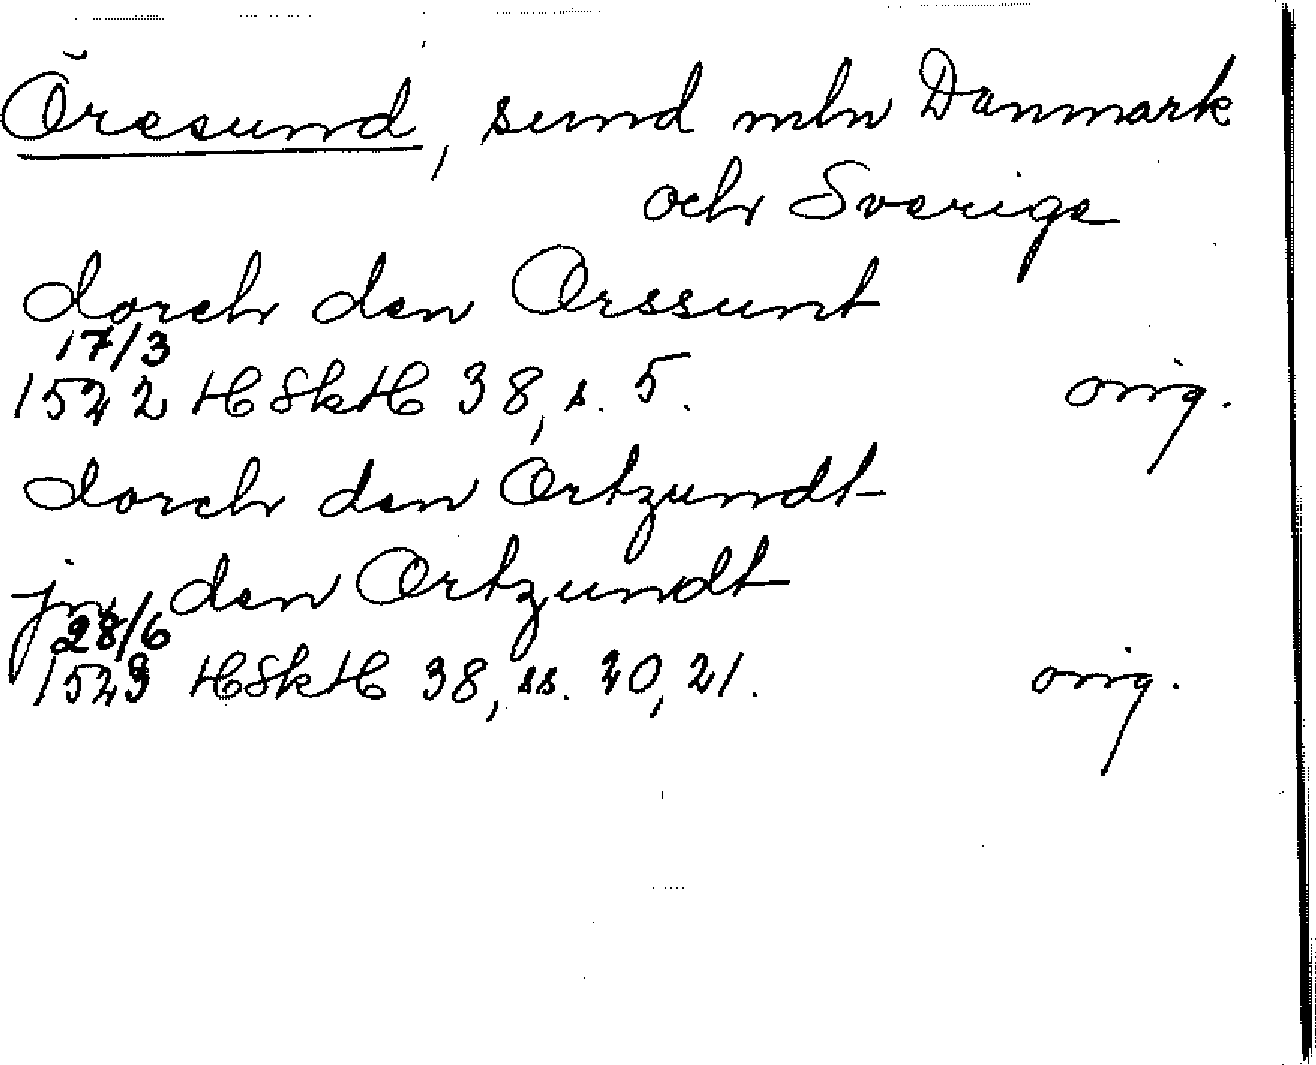 Öresund, sund mln Danmark
och Sverige
dorch den Orssunt
17/3
1522 HSkH 38, s. 5. orig.
dorch den Ortzundt
jn den Ortzundt
28/6
1523 HSkH 38, ss. 20, 21. orig.